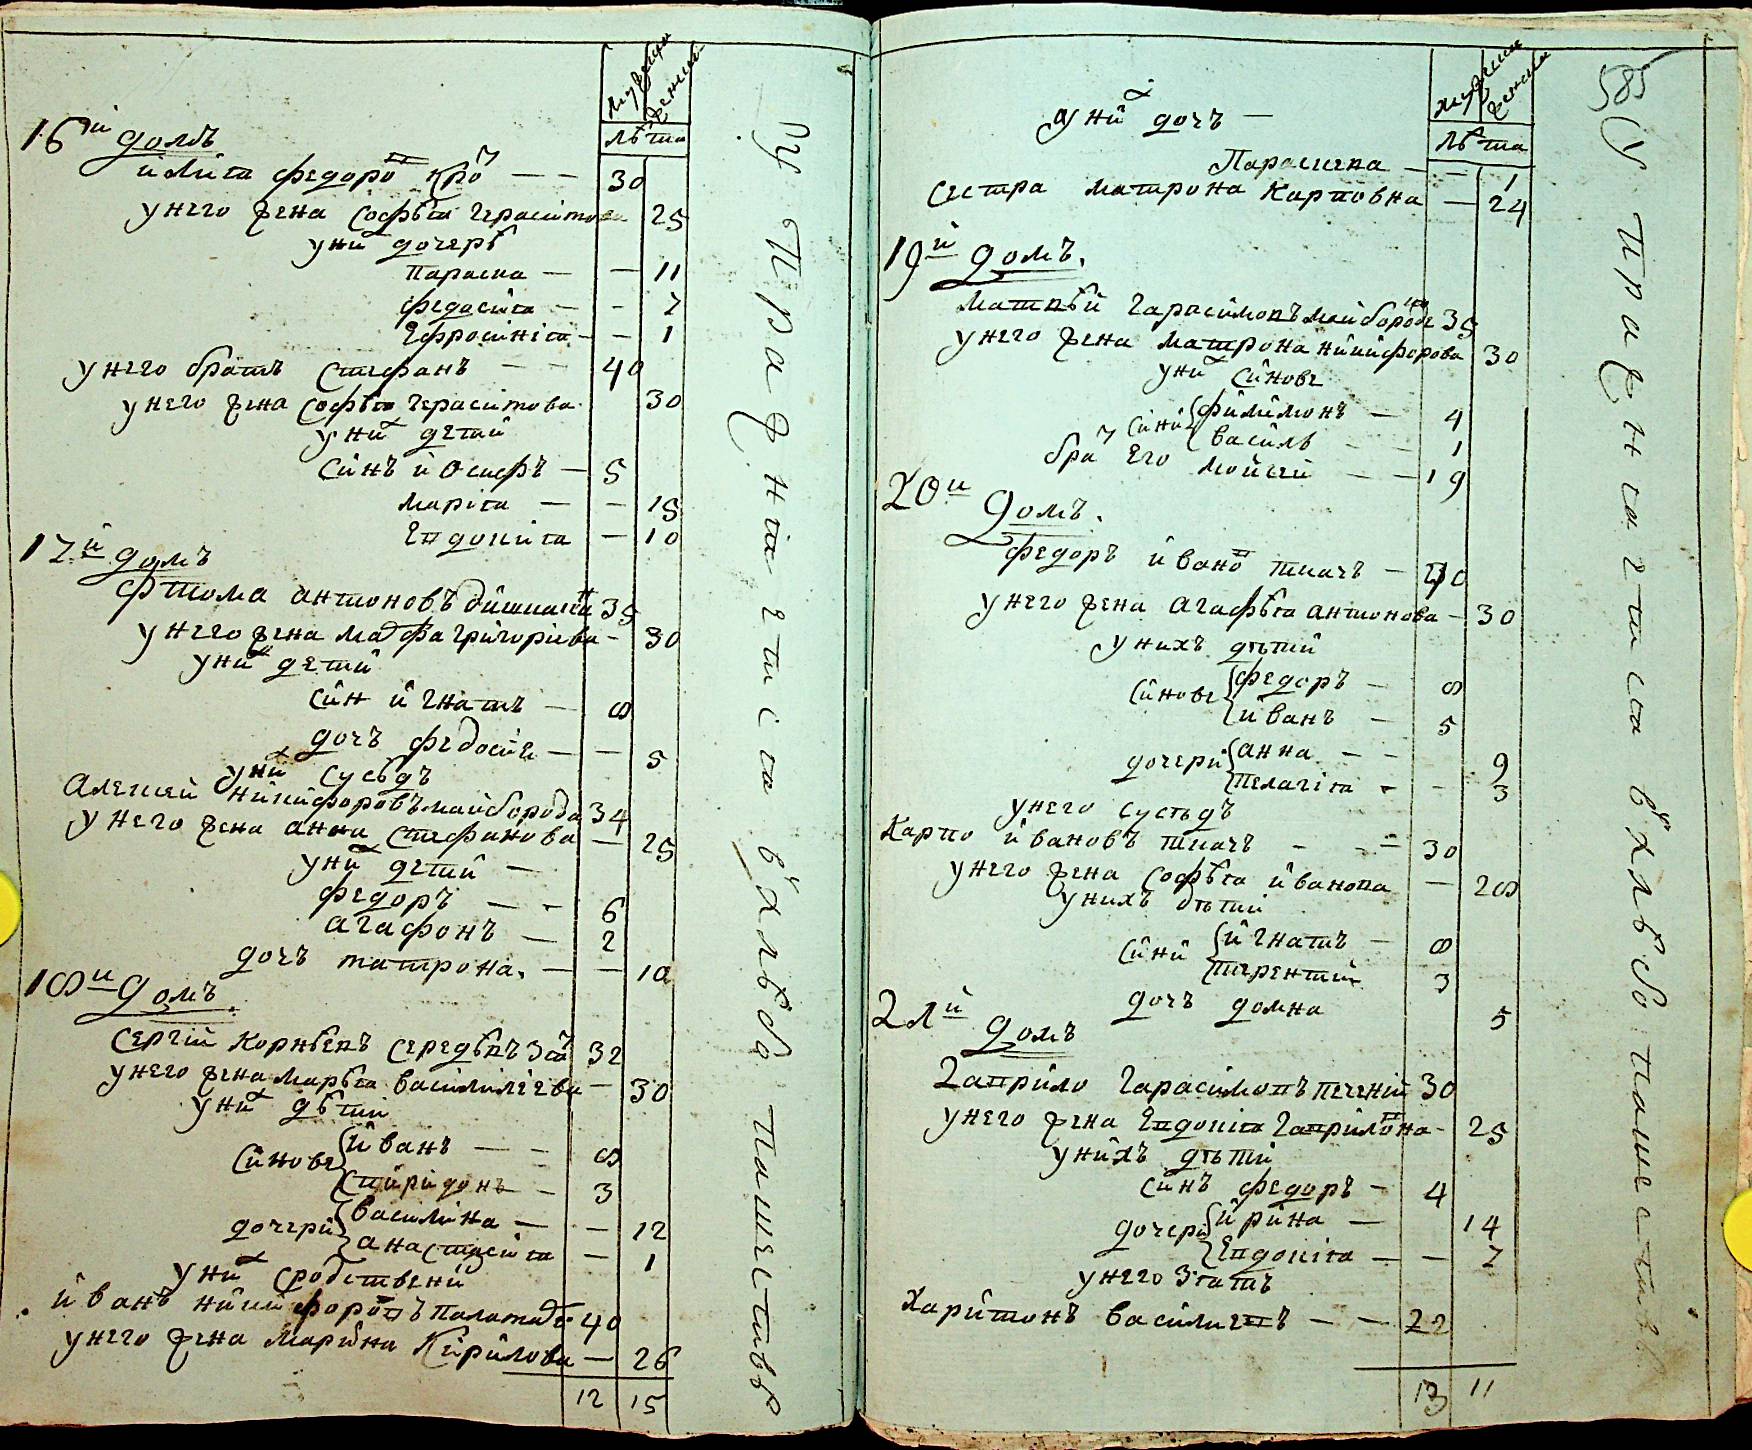 мужеска
женска
лѣта
16й домъ
илия федоровъ кро — — 30
у него жена софѣя герасимова 25
у них дочерѣ
параска — — 11
федосия — — 7
Ефросинїя — — 1
у него братъ стефанъ — — 40
у него жена софѣя герасимова 30
у них детий
синъ иосифъ — 5
марїя — — 15
Евдокия — 10
17й домъ
фтома антоновъ 35
у него жена марфа григорїева — 30
у них детий
син игнатъ — 8
дочъ федосия — — 5
у них сусѣдъ
алексей никифоровъ майборода 34
у него жена анна стефанова — 25
у них детий —
федоръ — — 6
агафонъ — 2
дочъ матрона. — — 10
18й домъ
сергий корнѣевъ середѣнъ зят 32
у него жена марѣя василиѣва — 30
у них дѣтий
синове иванъ — — 8
спиридонъ — 3
дочери василина — — 12
анастасия — 1
у них сродствений
иванъ никифоровъ 40
у него жена марина кирилова — 26
12 15
мужеска
женска
лѣта
585
у них дочъ —
Параскева — — 1
сестра матрона карповна — 24
19й домъ.
матвѣй гарасимовъ майборода 35
у него жена матрона никифорова 30
у них синове
сини филимонъ — 4
василь — — 1
бра его мойсей — — 19
20й домъ.
федоръ иванов ткачъ — 40
у него жена агафѣя антонова — 30
у нихъ дѣтий
синове федоръ — 8
иванъ — 5
дочери анна — — 9
пелагїя — — 3
у него сусѣдъ
карпо ивановъ ткачъ — — 30
у него жена софѣя иванова — 28
у нихъ дѣтий
сини игнатъ — 8
терентий 3
дочъ домна 5
21й домъ
гаврило гарасимовъ печений 30
у него жена Евдокия гаврилова — 25
у нихъ дѣтий
синъ федоръ — 4
дочери ирина — 14
Евдокия — — 7
у него зятъ
харитонъ василиевъ — — 22
13 11